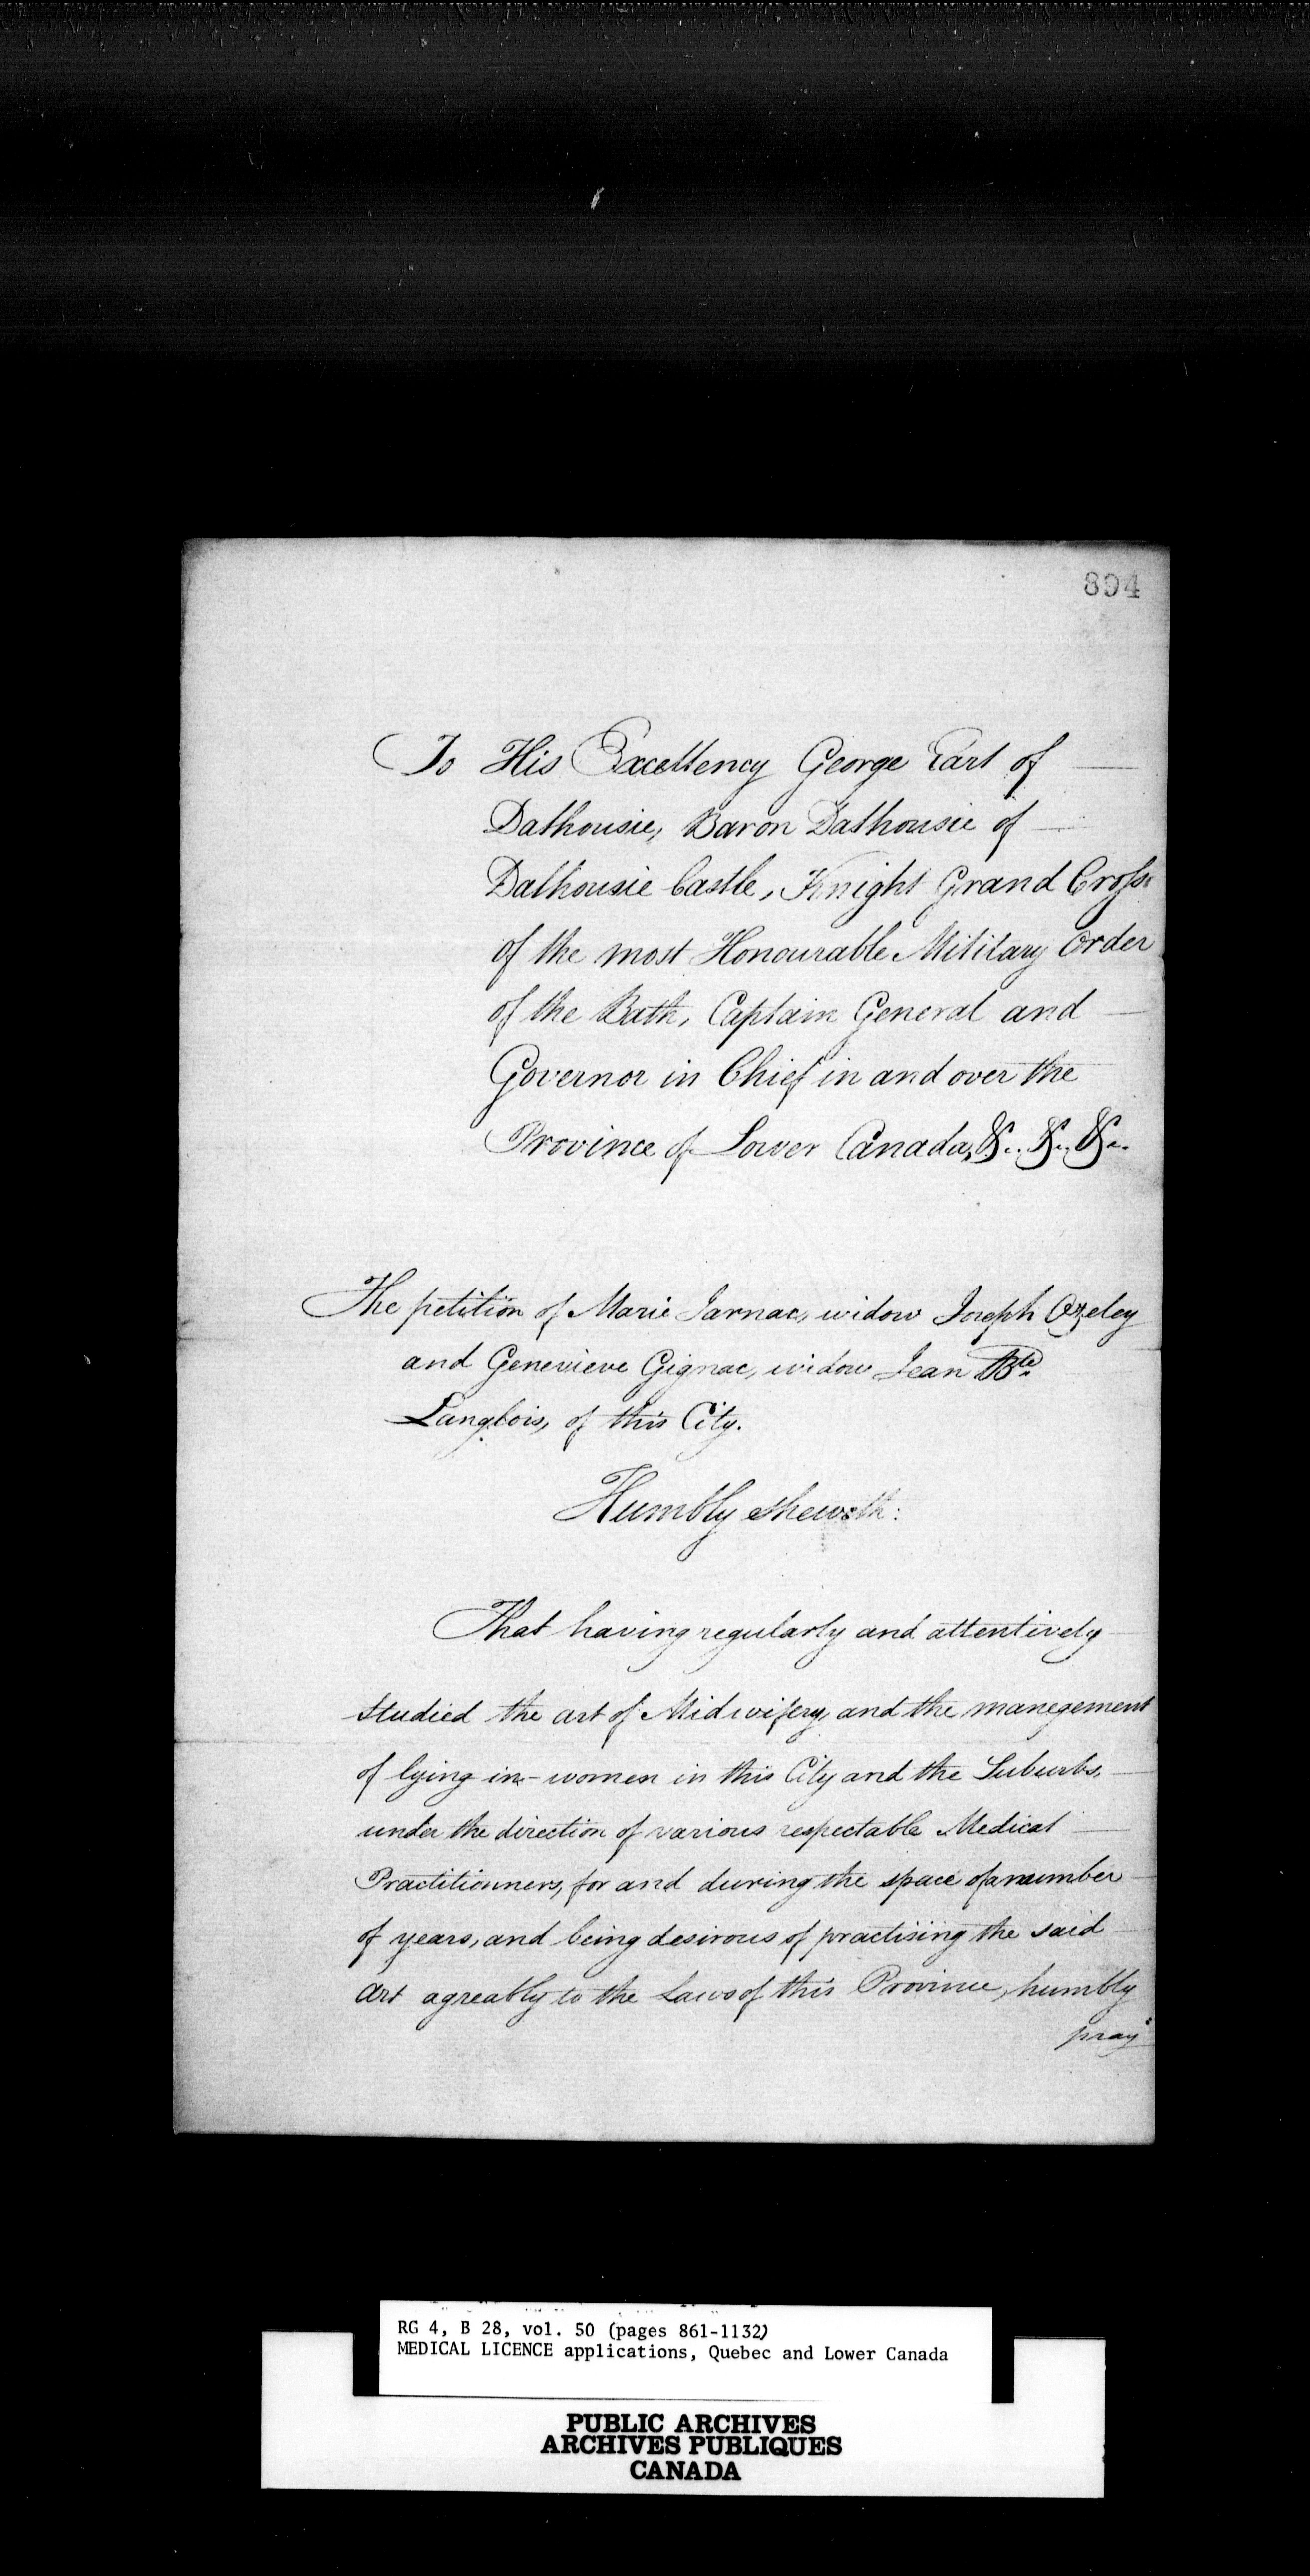 894
To His Excellency George Earl of
Dalhousie, Baron Dalhousie of
Dalhousie Castle, Knight Grand Cross
of the most Honourable Military Order
of the Bath, Captain General and
Governor in Chief in and over the
Province of Lower Canada, &c. &c. &c.
The petition of Marie Jarnac, widow Joseph Ozeley
and Genevieve Gignac, widow Jean Bte.
Langlois, of this City.
Humbly sheweth:
That having regularly and attentively
studied the art of Midwifery, and the manegement
of lying in-women in this City and the Suburbs,
under the direction of various respectable Medical
Practitionners, for and during the space of a number
of years, and being desirous of practising the said
Art agreably to the Laws of this Province, humbly
pray
RG 4, B 28, vol. 50 (pages 861-1132)
MEDICAL LICENCE applications, Quebec and Lower Canada
PUBLIC ARCHIVES
ARCHIVES PUBLIQUES
CANADA